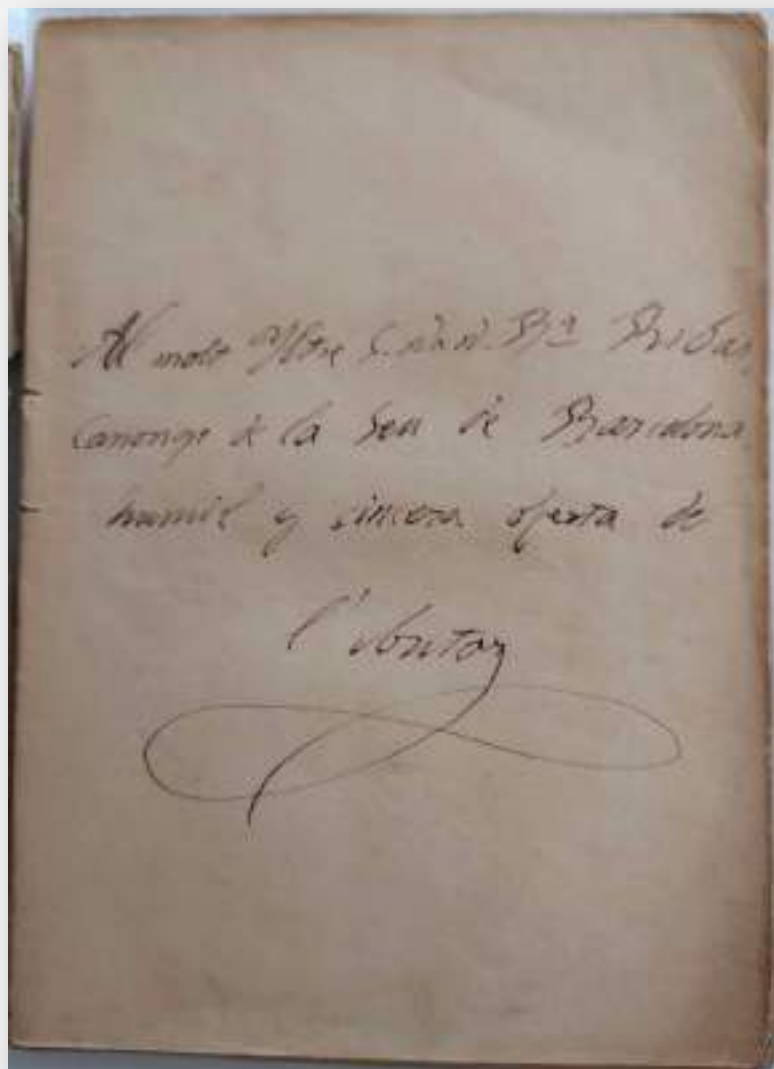 Al molt Iltre
Canonge de la Seu de Barcelona
humil y sincera oferta de
l'Autor